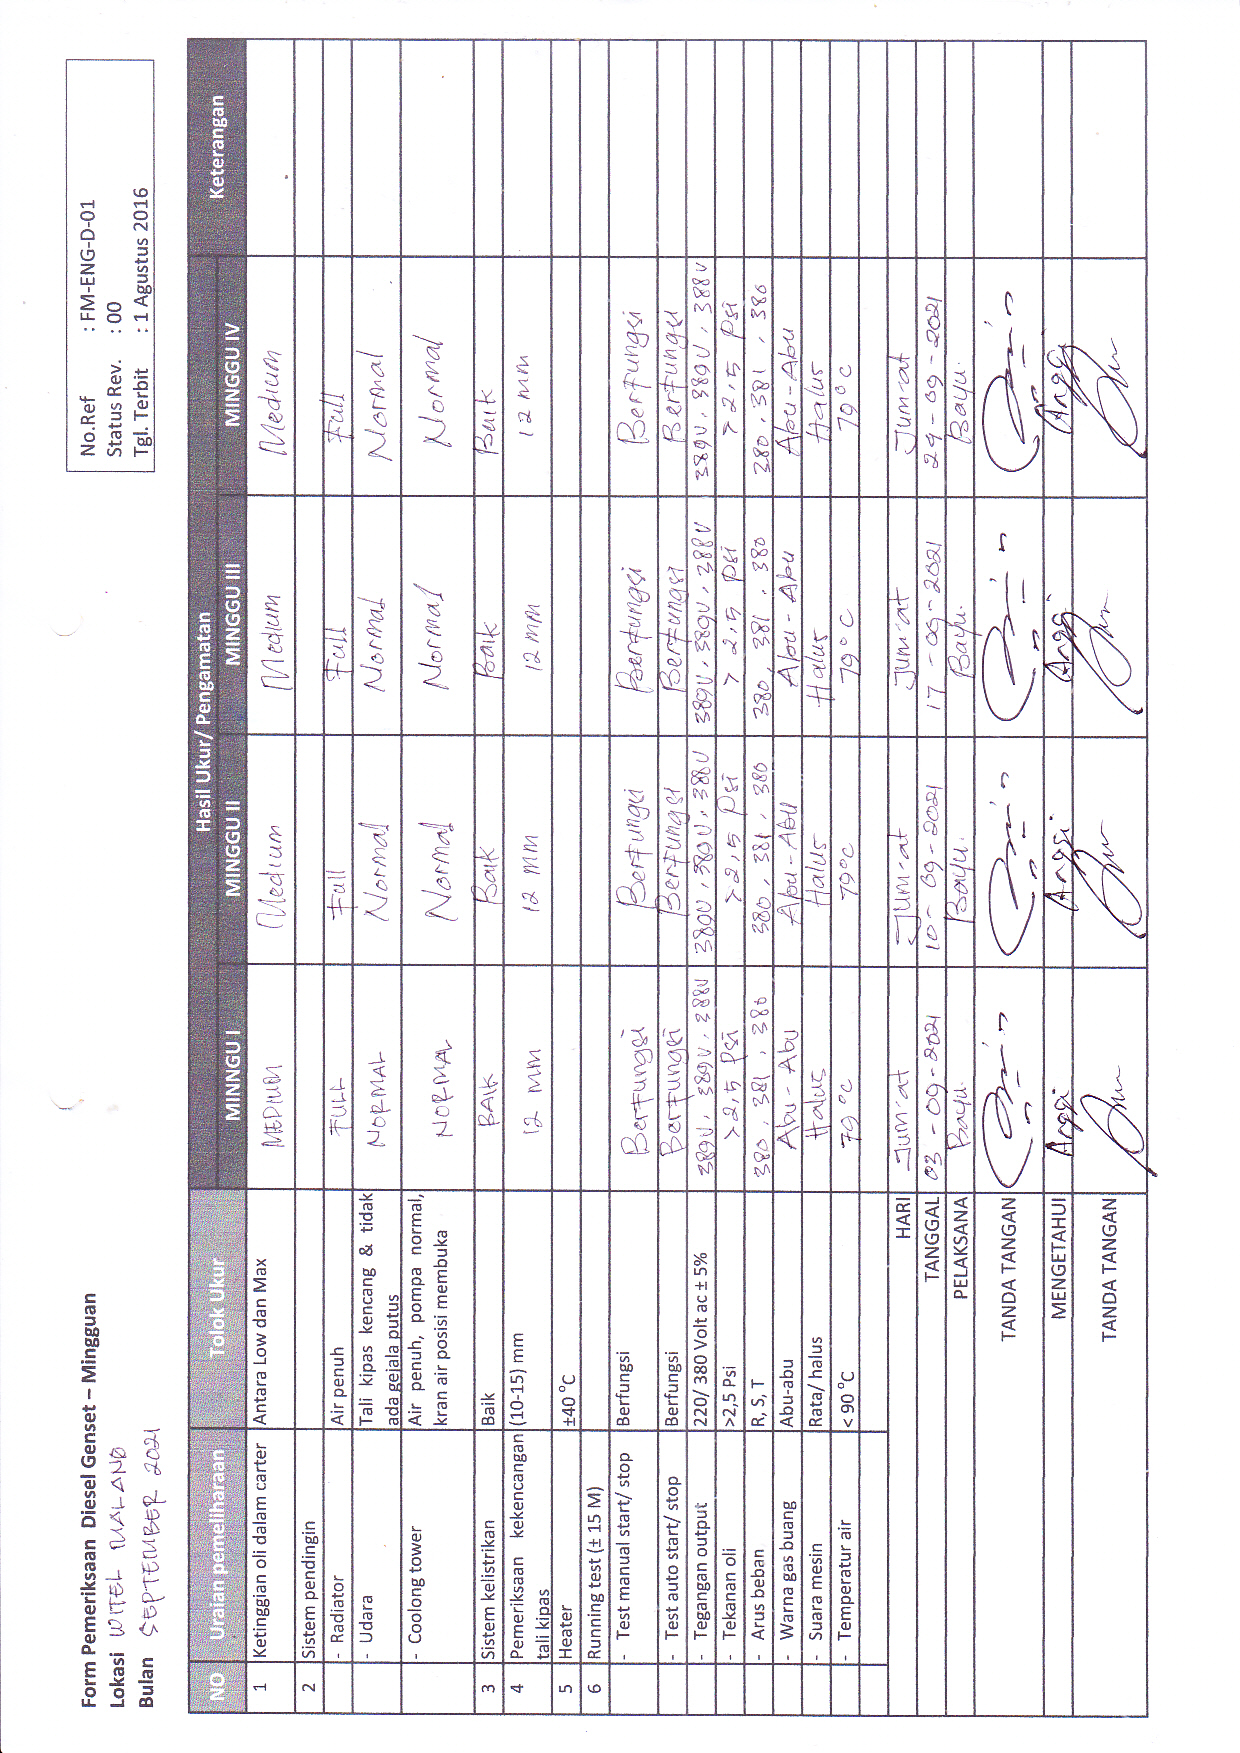 Form Pemeriksaan Diesel Genset – Mingguan
Lokasi WITEL MALANG
Bulan SEPTEMBER 2021
No.Ref : FM-ENG-D-01
Status Rev. : 00
Tgl. Terbit : 1 Agustus 2016
NO Uraian pemeliharaan Tolok Ukur Hasil Ukur/ Pengamatan Keterangan
MINNGU I MINGGU II MINGGU III MINGGU IV
1 Ketinggian oli dalam carter Antara Low dan Max MEDIUM Medium Medium Medium
2 Sistem pendingin
- Radiator Air penuh FULL Full Full Full
- Udara Tali kipas kencang & tidak ada gejala putus NORMAL Normal Normal Normal
- Coolong tower Air penuh, pompa normal, kran air posisi membuka NORMAL Normal Normal Normal
3 Sistem kelistrikan Baik BAIK Baik Baik Baik
4 Pemeriksaan kekencangan tali kipas (10-15) mm 12 MM 12 MM 12 MM 12 MM
5 Heater ±40 °C
6 Running test (± 15 M)
- Test manual start/ stop Berfungsi Berfungsi Berfungsi Berfungsi Berfungsi
- Test auto start/ stop Berfungsi Berfungsi Berfungsi Berfungsi Berfungsi
- Tegangan output 220/ 380 Volt ac ± 5% 389V, 389V, 388V 389V, 389V, 388V 389V, 389V, 388V 389V, 389V, 388V
- Tekanan oli >2,5 Psi >2,5 Psi >2,5 Psi > 2,5 Psi > 2,5 Psi
- Arus beban R, S, T 380, 381, 380 380, 381, 380 380, 381, 380 380, 381, 380
- Warna gas buang Abu-abu Abu-Abu Abu-Abu Abu-Abu Abu-Abu
- Suara mesin Rata/ halus Halus Halus Halus Halus
- Temperatur air < 90 °C 79 °C 79°C 79° C 79° C
HARI Jum'at Jum'at Jum'at Jum'at
TANGGAL 03 - 09 - 2021 10 - 09 - 2021 17 - 09 - 2021 24 - 09 - 2021
PELAKSANA Bayu. Bayu. Bayu. Bayu.
TANDA TANGAN
MENGETAHUI Anggi Anggi Anggi Anggi
TANDA TANGAN